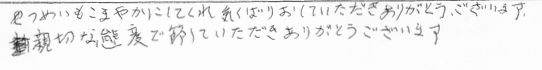 せつめいもこまやかにしてくれ気くばりおしていただきありがとうございます。
親切な態度で節していただきありがとうございます